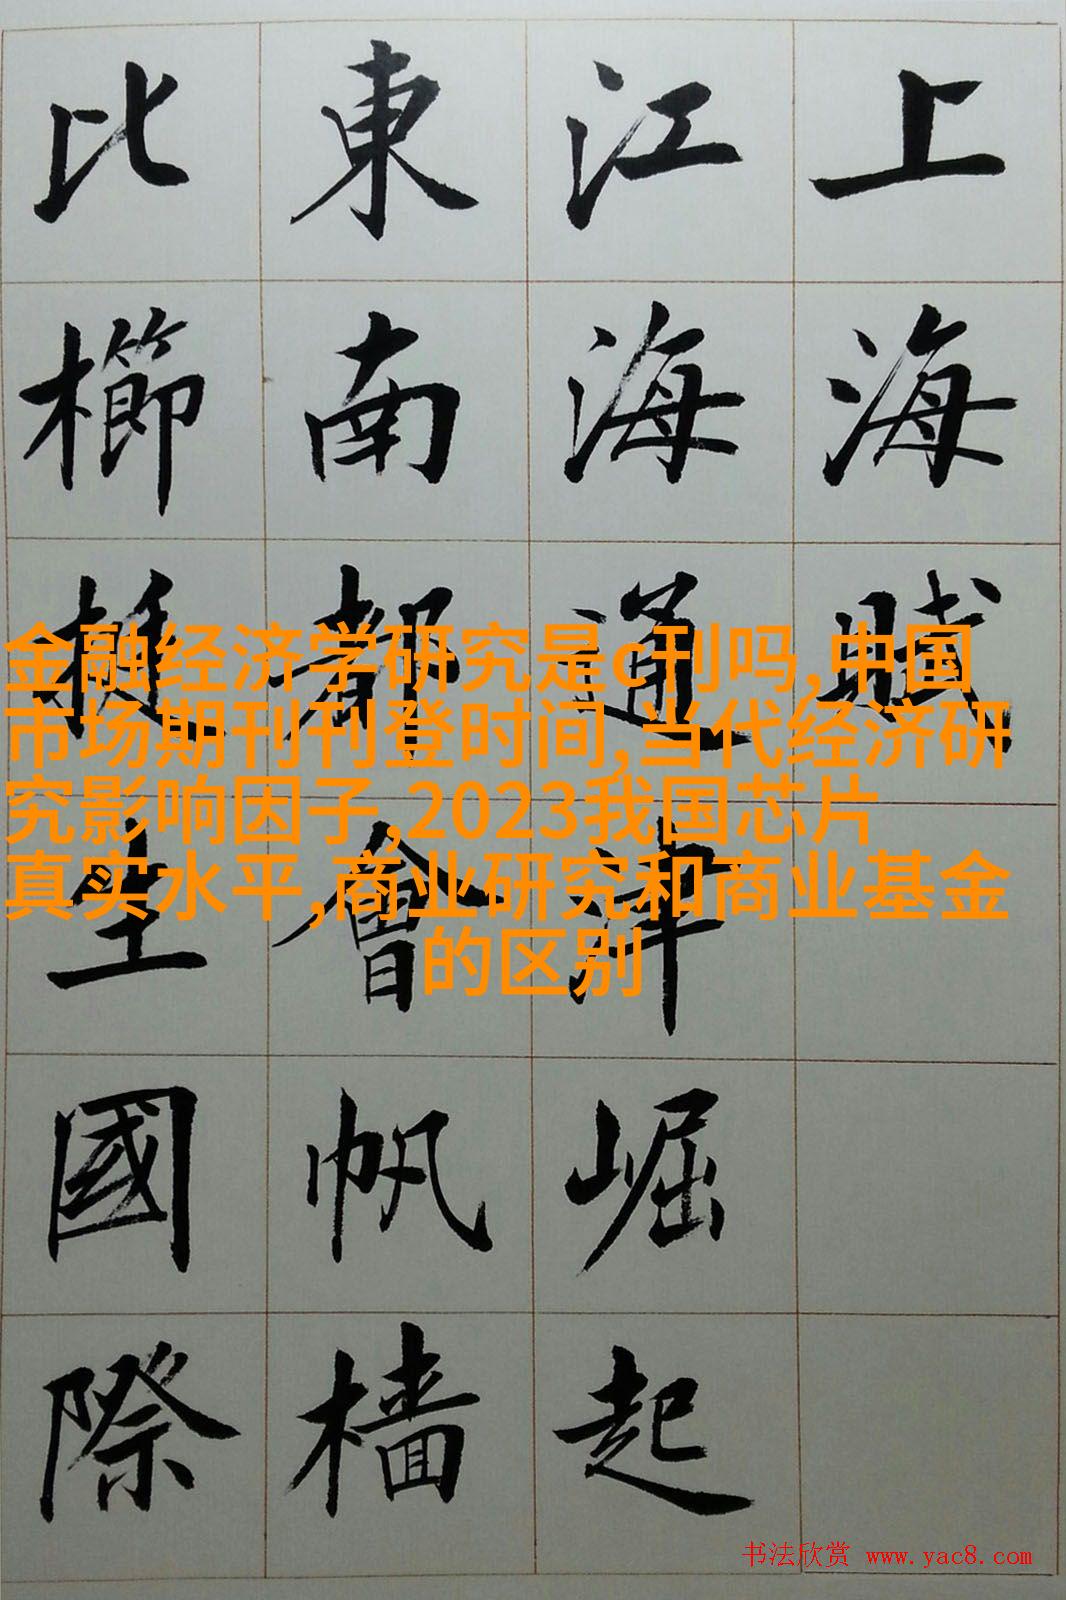 上海賦
江海通津崛起
東南都會帆檣
比櫛
國際
金融经济学研究是c刊吗,中国
市场期刊刊登时间,当代经济研
究影响因子,2023我国芯片
真实水平,商业研究和商业基金
的区别
书法欣赏 www.yac8.com